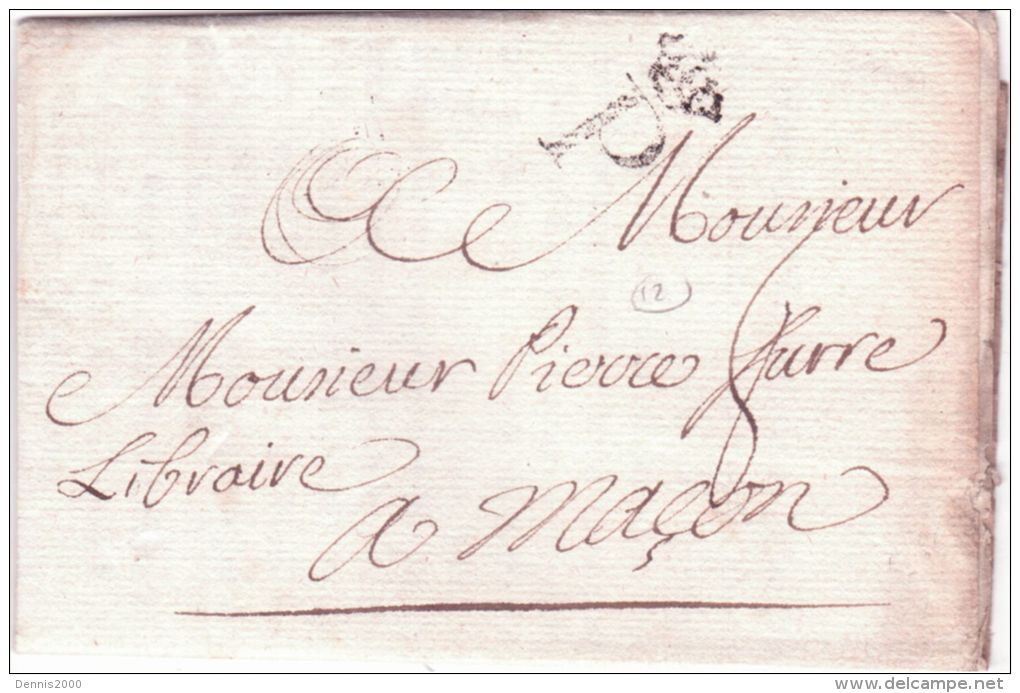 P
A Monsieur
12
Monsieur Pierre Furre
Libraire
a Maçon
Dennis2000
www.delcampe.net